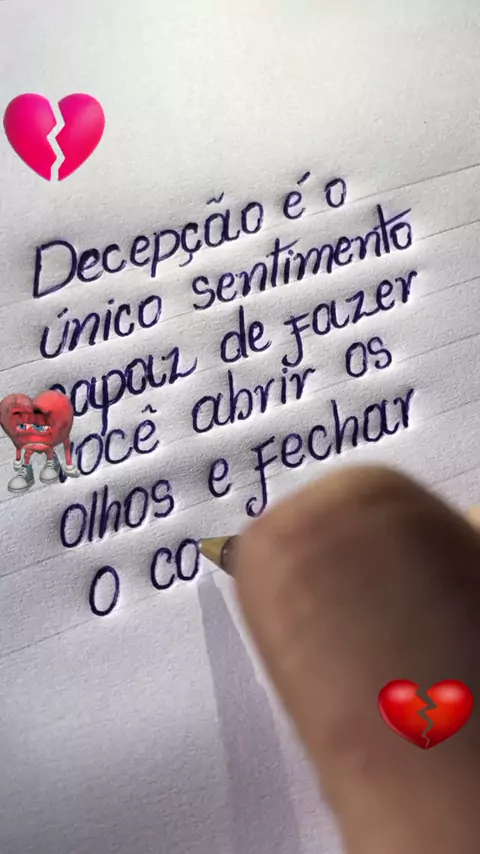 Decepção é o
único sentimento
capaz de fazer
você abrir os
olhos e fechar
o co